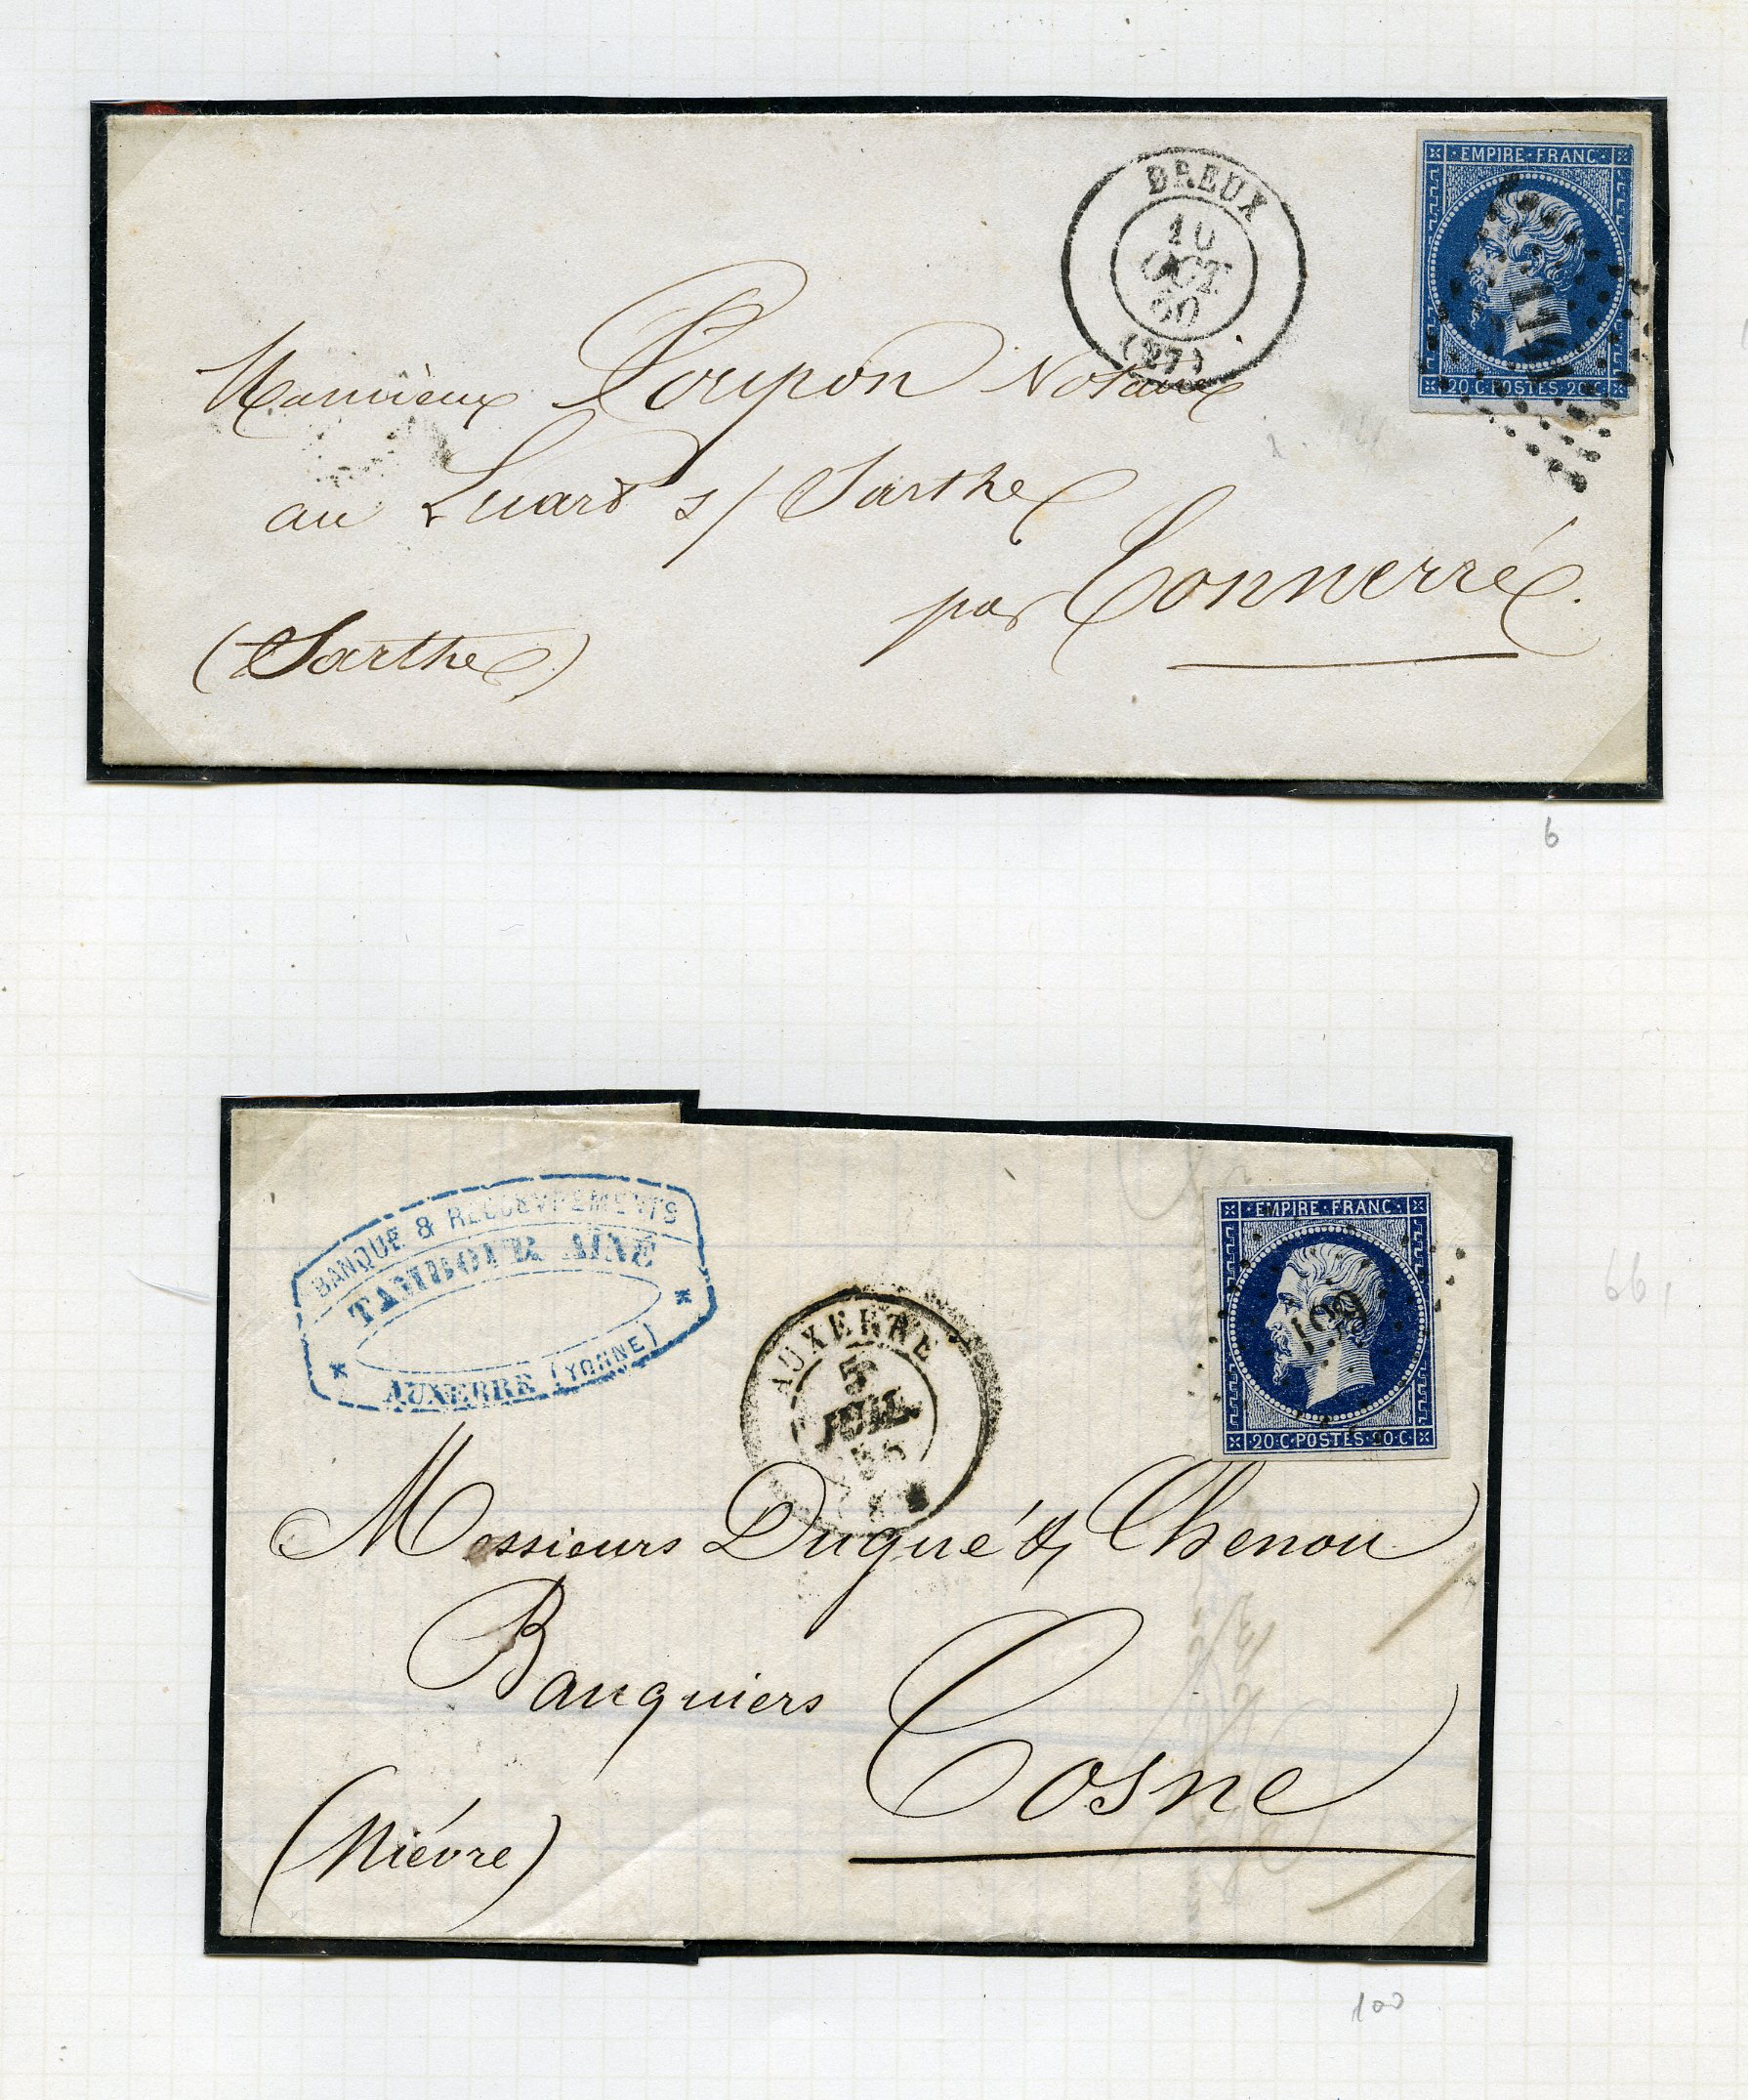 EMPIRE·FRANC·
DREUX
10
OCT
60
(27)
20·C·POSTES·20·C·
Monsieur Poupon Notaire
au Luart s/ Sarthe
par Connerré.
(Sarthe)
6
BANQUE & RECOUVREMENTS
TAMBOUR AINÉ
AUXERRE (YONNE)
EMPIRE·FRANC·
AUXERRE
5
JUIL.
20·C·POSTES·20·C·
66
Messieurs Duqué & Chenou
Banquiers
Cosne
(Nièvre)
100